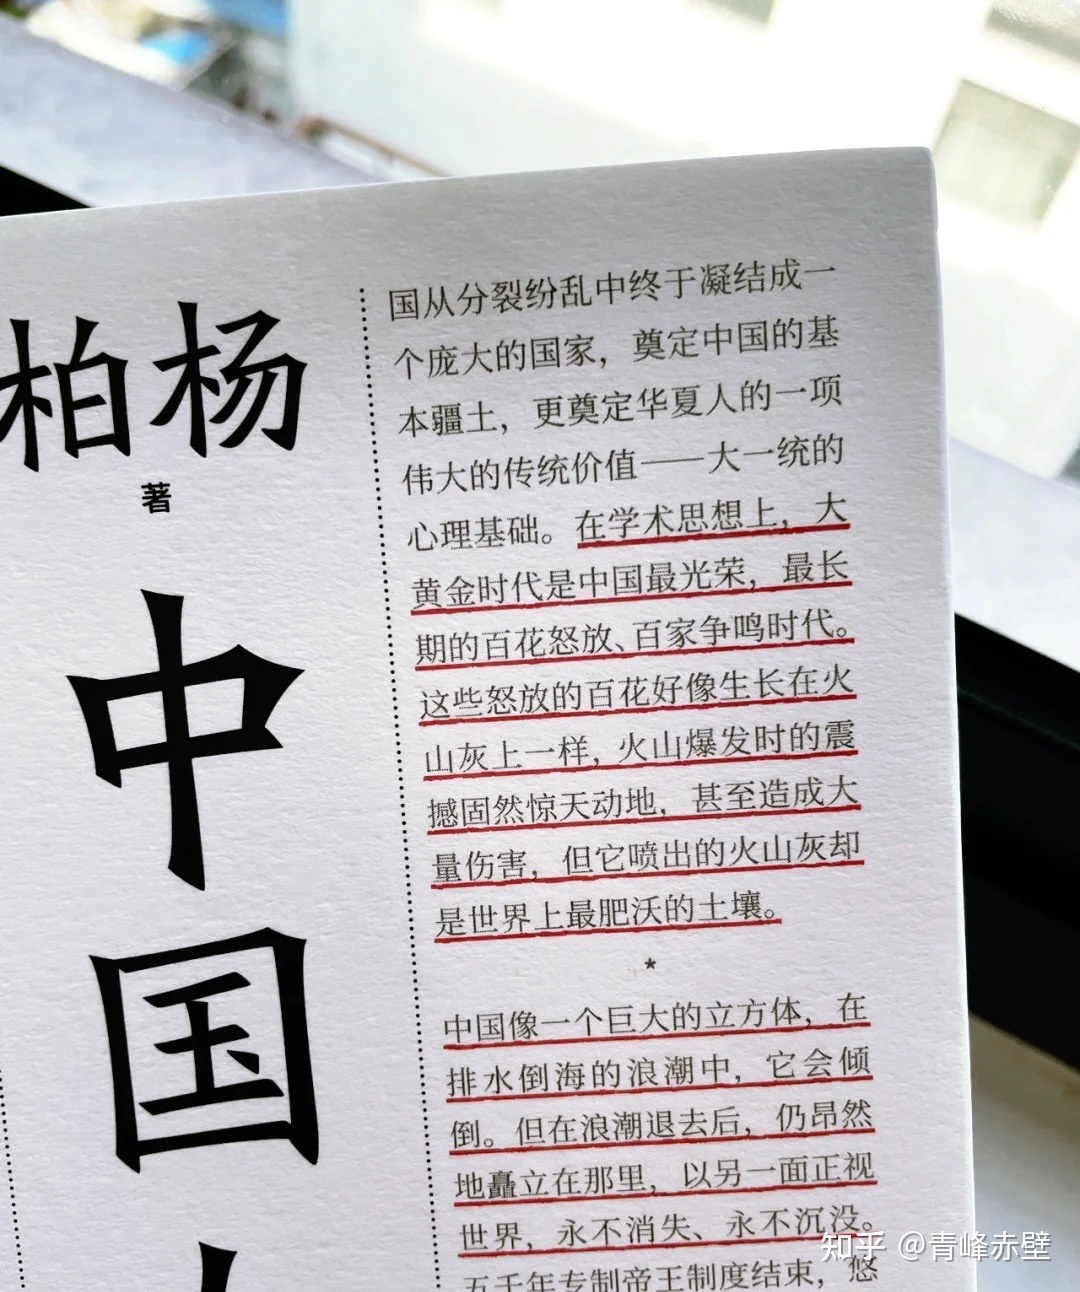 柏杨
著
中
国
国从分裂纷乱中终于凝结成一
个庞大的国家，奠定中国的基
本疆土，更奠定华夏人的一项
伟大的传统价值——大一统的
心理基础。在学术思想上，大
黄金时代是中国最光荣，最长
期的百花怒放、百家争鸣时代。
这些怒放的百花好像生长在火
山灰上一样，火山爆发时的震
撼固然惊天动地，甚至造成大
量伤害，但它喷出的火山灰却
是世界上最肥沃的土壤。
*
中国像一个巨大的立方体，在
排水倒海的浪潮中，它会倾
倒。但在浪潮退去后，仍昂然
地矗立在那里，以另一面正视
世界，永不消失、永不沉没。
五千年专制帝王制度结束，悠
知乎 @青峰赤壁